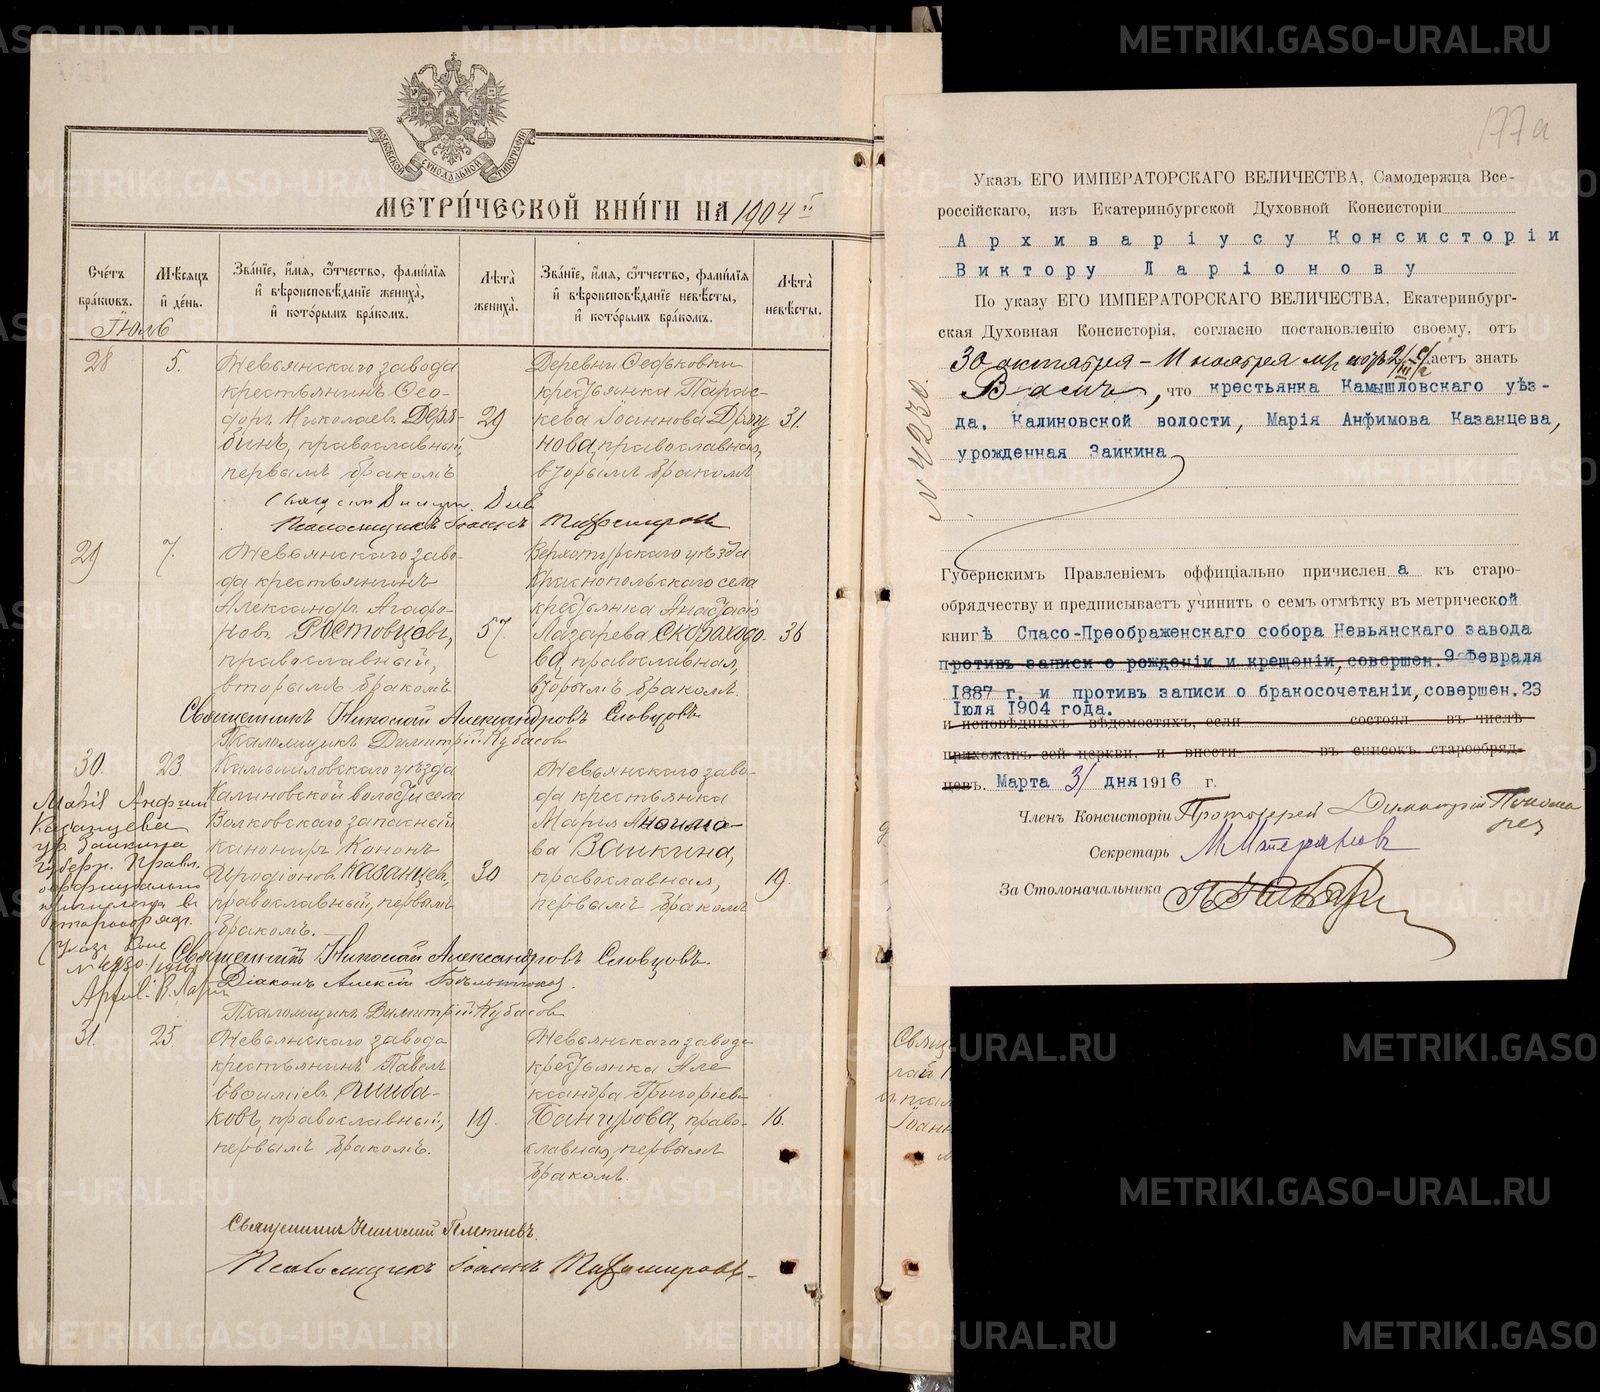 МОСКОВСКОЙ СѴНОДАЛЬНОЙ ТИПОГРАФІИ
МЕТРИ́ЧЕСКОЙ КНИ́ГИ НА 1904 г.
Сче́тъ бра́ковъ.
Мѣ́сяцъ и де́нь.
Зва́нїе, и́мя, ѻ́тчество, фами́лїя и҆ вѣроисповѣ́данїе жениха̀, и҆ кото́рымъ бра́комъ.
Лѣта̀ жениха̀.
Зва́нїе, и́мя, ѻ́тчество, фами́лїя и҆ вѣроисповѣ́данїе невѣ́сты, и҆ кото́рымъ бра́комъ.
Лѣта̀ невѣ́сты.
Іюль
28
5.
Невьянскаго завода
крестьянинъ Ѳео-
доръ Николаевъ Деря-
бинъ, православный,
первымъ бракомъ
29
Деревни Ѳедьковки
крестьянка Парас-
кева Іоаннова Дрягу
нова, православная,
вторымъ бракомъ
31.
Псаломщикъ Іоаннъ Тихомировъ
29
7.
Невьянскаго заво-
да крестьянинъ
Александръ Агафо-
новъ Ростовцовъ,
православный,
вторымъ бракомъ
57
Верхотурскаго уѣзда
Краснопольскаго села
крестьянка Анастасія
Лазарева Скороходо
ва, православная,
вторымъ бракомъ.
36
Священникъ Николай Александровъ Словцовъ
Псаломщикъ Димитрій Кубасовъ
30.
23.
Камышловскаго уѣзда
Калиновской волости села
Волковскаго запасный
канониръ Кононъ
Иродіоновъ Казанцевъ,
православный, первымъ
бракомъ.
30
Невьянскаго заво-
да крестьянка
Марія Анѳимо-
ва Заикина,
православная,
первымъ бракомъ
19.
Марія Анфим
Казанцева
ур. Заикина
Губерн. Правл.
оффиціально
причислена къ
старообряд.
(Указъ Конс
№ 4230/1916)
Архив. В. Ларіон
Священникъ Николай Александровъ Словцовъ.
Діаконъ Алексій
Псаломщикъ Димитрій Кубасовъ
31.
25.
Невьянскаго завода
крестьянинъ Павелъ
Шиба-
ковъ, православный,
первымъ бракомъ.
19.
Невьянскаго завода
крестьянка Але
ксандра Григоріева
Бангурова, право-
славная, первымъ
бракомъ.
16.
Священникъ Николай Плетневъ.
Псаломщикъ Іоаннъ Тихомировъ.
177а
Указъ ЕГО ИМПЕРАТОРСКАГО ВЕЛИЧЕСТВА, Самодержца Все-
россійскаго, изъ Екатеринбургской Духовной Консисторіи
Архиваріусу Консисторіи
Виктору Ларіонову
По указу ЕГО ИМПЕРАТОРСКАГО ВЕЛИЧЕСТВА, Екатеринбург-
ская Духовная Консисторія, согласно постановленію своему, отъ
30 октября – 11 ноября даетъ знать
Вамъ, что крестьянка Камышловскаго уѣз-
да, Калиновской волости, Марія Анфимова Казанцева,
урожденная Заикина
№ 4230.
Губернскимъ Правленіемъ оффиціально причислена къ старо-
обрядчеству и предписываетъ учинить о семъ отмѣтку въ метрической
книгѣ Спасо-Преображенскаго собора Невьянскаго завода
противъ записи о рожденіи и крещеніи, совершен. 9 Февраля
1887 г. и противъ записи о бракосочетаніи, совершен. 23
Іюля 1904 года.
и исповѣдныхъ вѣдомостяхъ, если состоял въ числѣ
прихожанъ сей церкви, и внести въ списокъ старообряд-
цевъ. Марта 31 дня 1916 г.
Членъ Консисторіи Протоіерей Димитрій Пономаревъ
Секретарь
За Столоначальника
METRIKI.GASO-URAL.RU